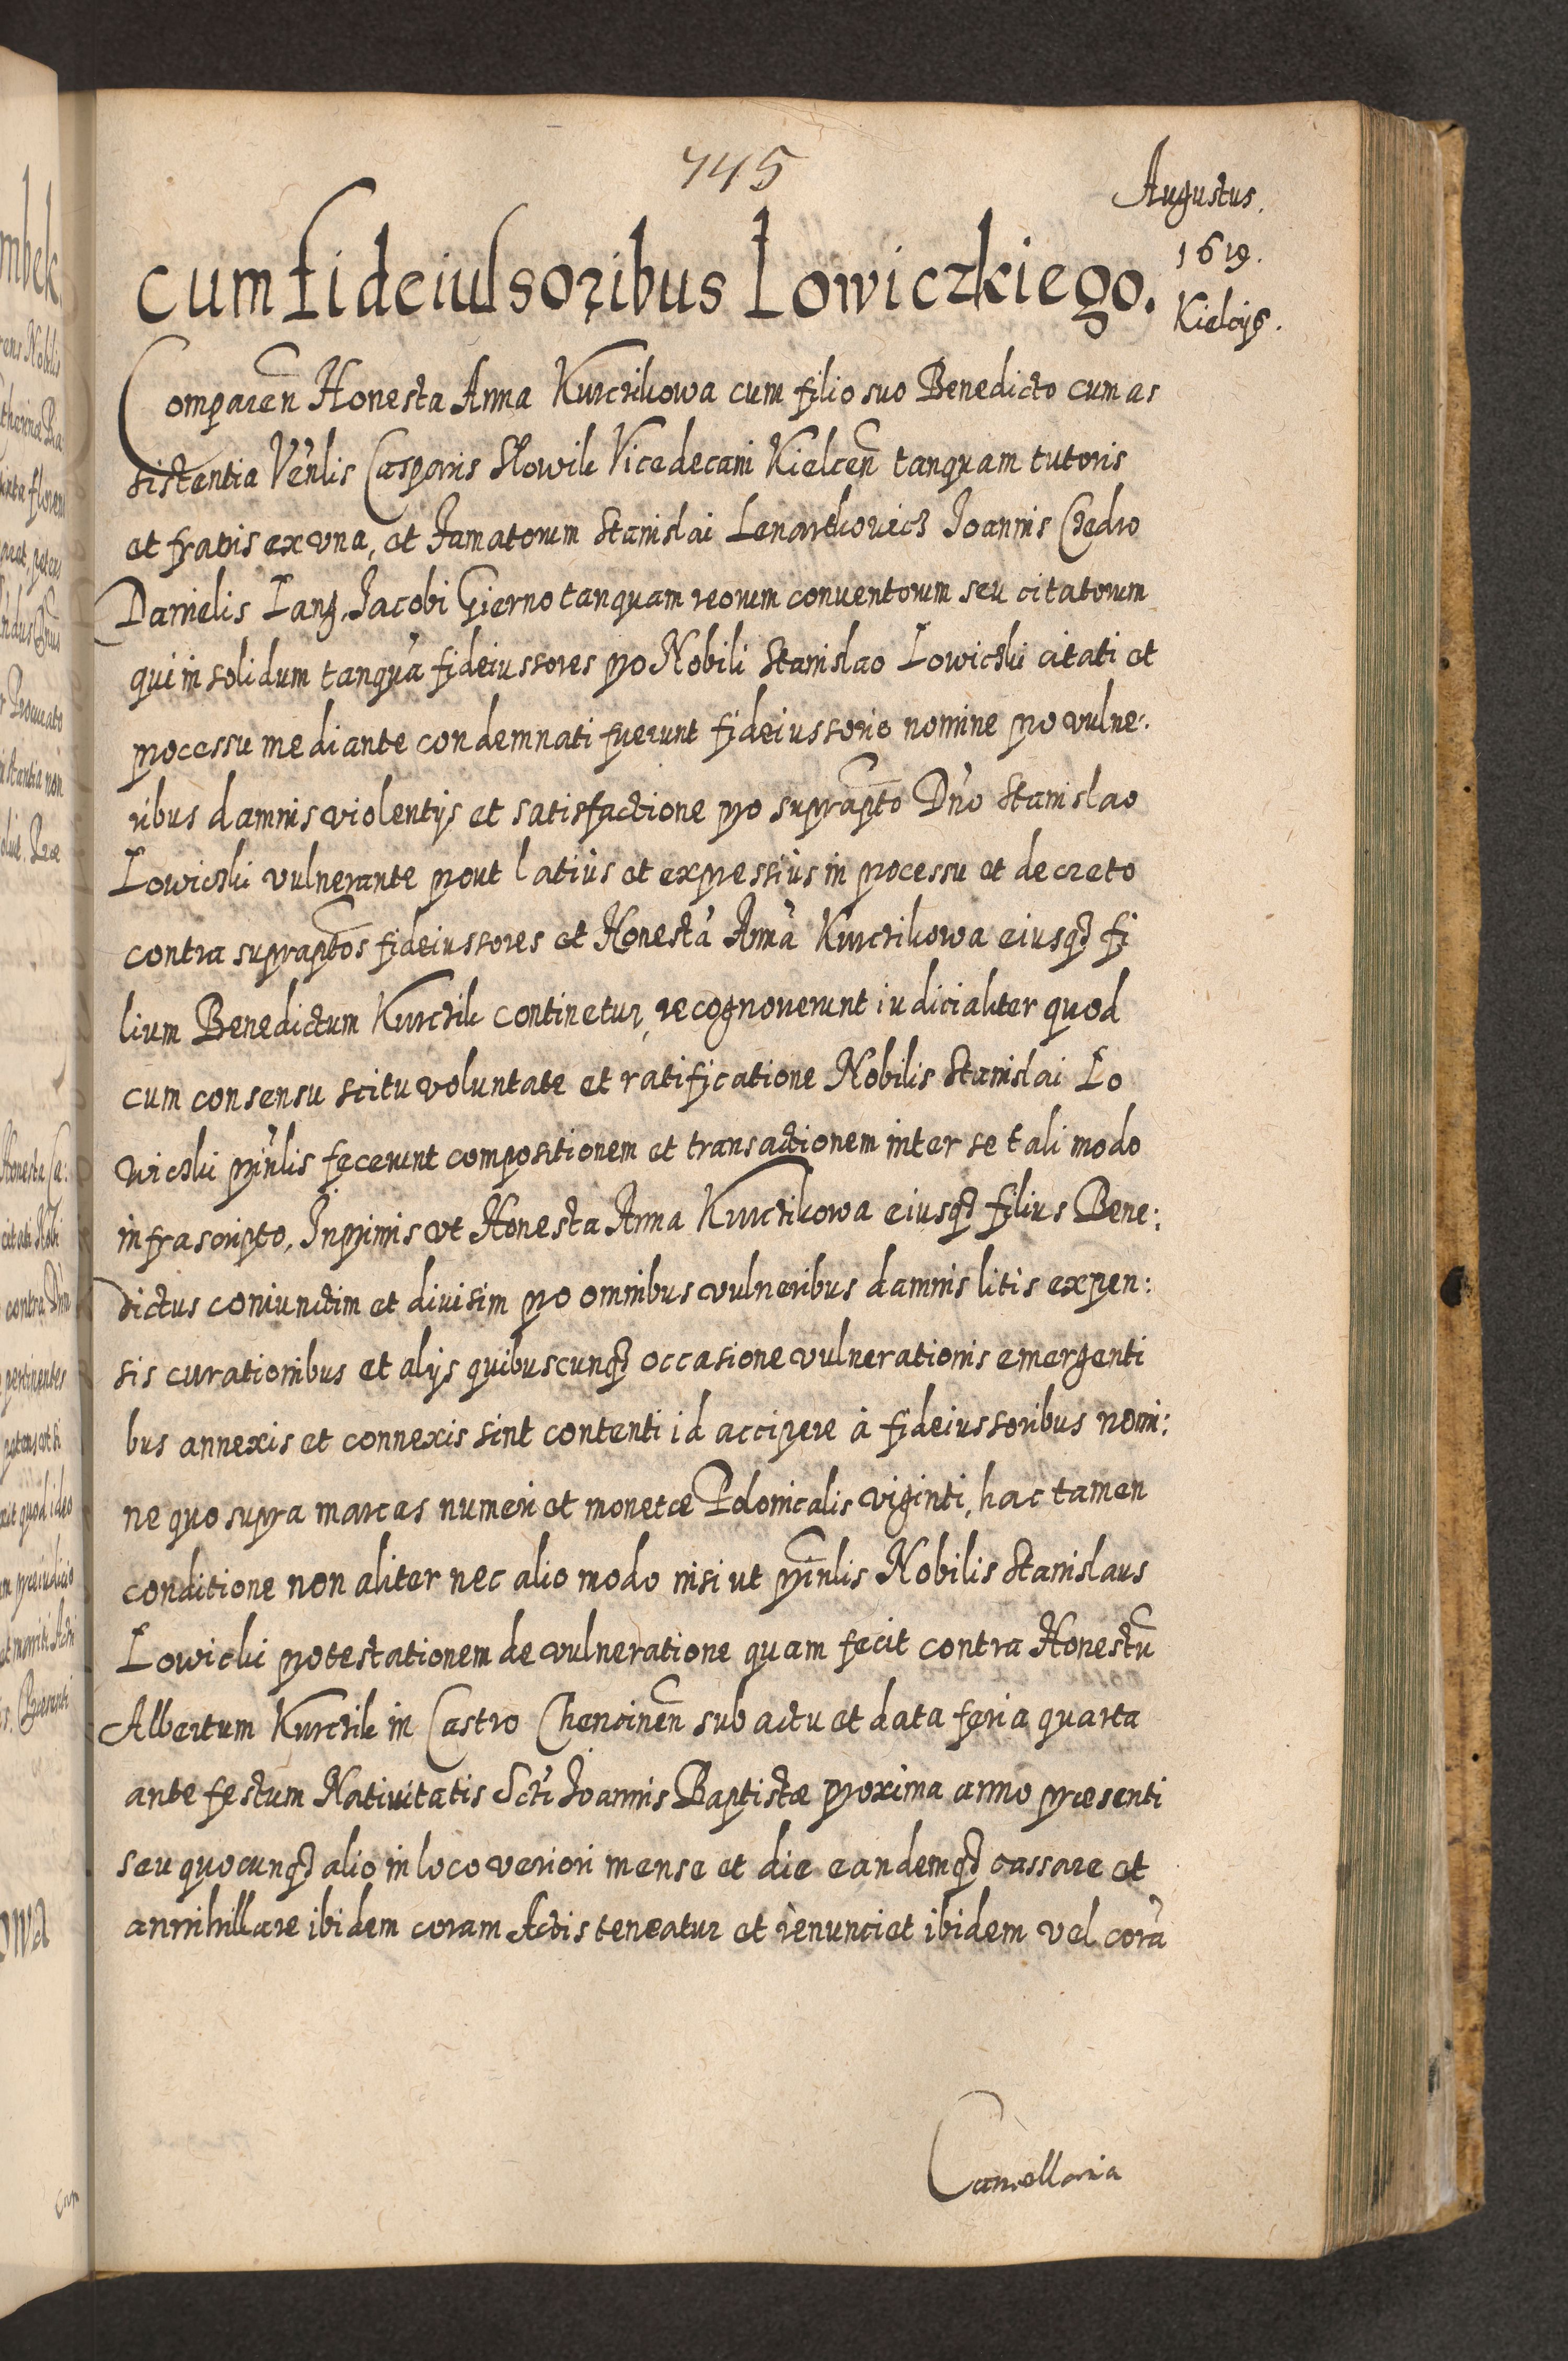 745
Augustus.
1619.
Kielcijs.
cum fideiussoribus Lowiczkiego.
Comparen Honesta Anna Kurczikowa cum filio suo Benedicto cum as
sistentia Venlis Casparis Słowik Vicedecani Kielcen tanquam tutoris
et fratris ex vna, et Famatorum Stanislai Lenartkowicz Joannis Chedro
Danielis Lang, Jacobi Gierno tanquam reorum conuentorum seu citatorum
qui in solidum tanqua fideiussores pro Nobili Stanislao Lowiczki citati et
processu mediante condemnati fuerunt fideiussorio nomine pro vulne:
ribus damnis violentijs et satisfactione pro suprapto Dno Stanislao
Lowiczki vulnerante prout latius et expressius in processu et decreto
contra supraptos fideiussores et Honesta Anna Kurczikowa eiusq fi
lium Benedictum Kurczik continetur, recognouerunt iudicialiter quod
cum consensu scitu voluntate et ratificatione Nobilis Stanislai Lo
wiczki prinlis fecerunt compositionem et transactionem inter se tali modo
infrascripto, Inprimis vt Honesta Anna Kurczikowa eiusq filius Bene:
dictus coniunctim et diuisim pro omnibus vulneribus damnis litis expen:
sis curationibus et alijs quibuscunq occasione vulnerationis emergenti
bus annexis et connexis sint contenti id accipere à fideiussoribus nomi:
ne quo supra marcas numeri et monetæ Polonicalis viginti, hac tamen
conditione non aliter nec alio modo nisi ut prinlis Nobilis Stanislaus
Lowiczki protestationem de vulneratione quam fecit contra Honestu
Albertum Kurczik in Castro Chencinen sub actu et data feria quarta
ante festum Natiuitatis Scti Joannis Baptistæ proxima anno præsenti
seu quocunq alio in loco veriori mense et die eandemq cassare et
annihillare ibidem coram Actis teneatur et renunciet ibidem vel cora
Cancellaria